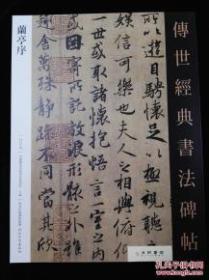 傳世經典書法碑帖
所以遊目騁懷足以極視聽
娛信可樂也夫人之相與俯仰
一世或取諸懷抱悟言一室之內
因寄所託放浪形骸之外雖
趣舍萬殊靜躁不同當其欣
蘭亭序